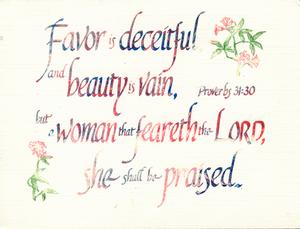 Favor is deceitful
and beauty is vain,
Proverbs 31:30
but a woman that feareth the LORD,
she shall be praised.